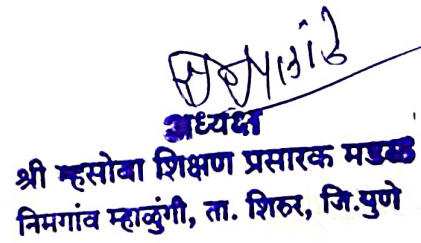 अध्यक्ष
श्री म्हसोबा शिक्षण प्रसारक मंडळ
निमगांव म्हाळुंगी, ता. शिरुर, जि.पुणे